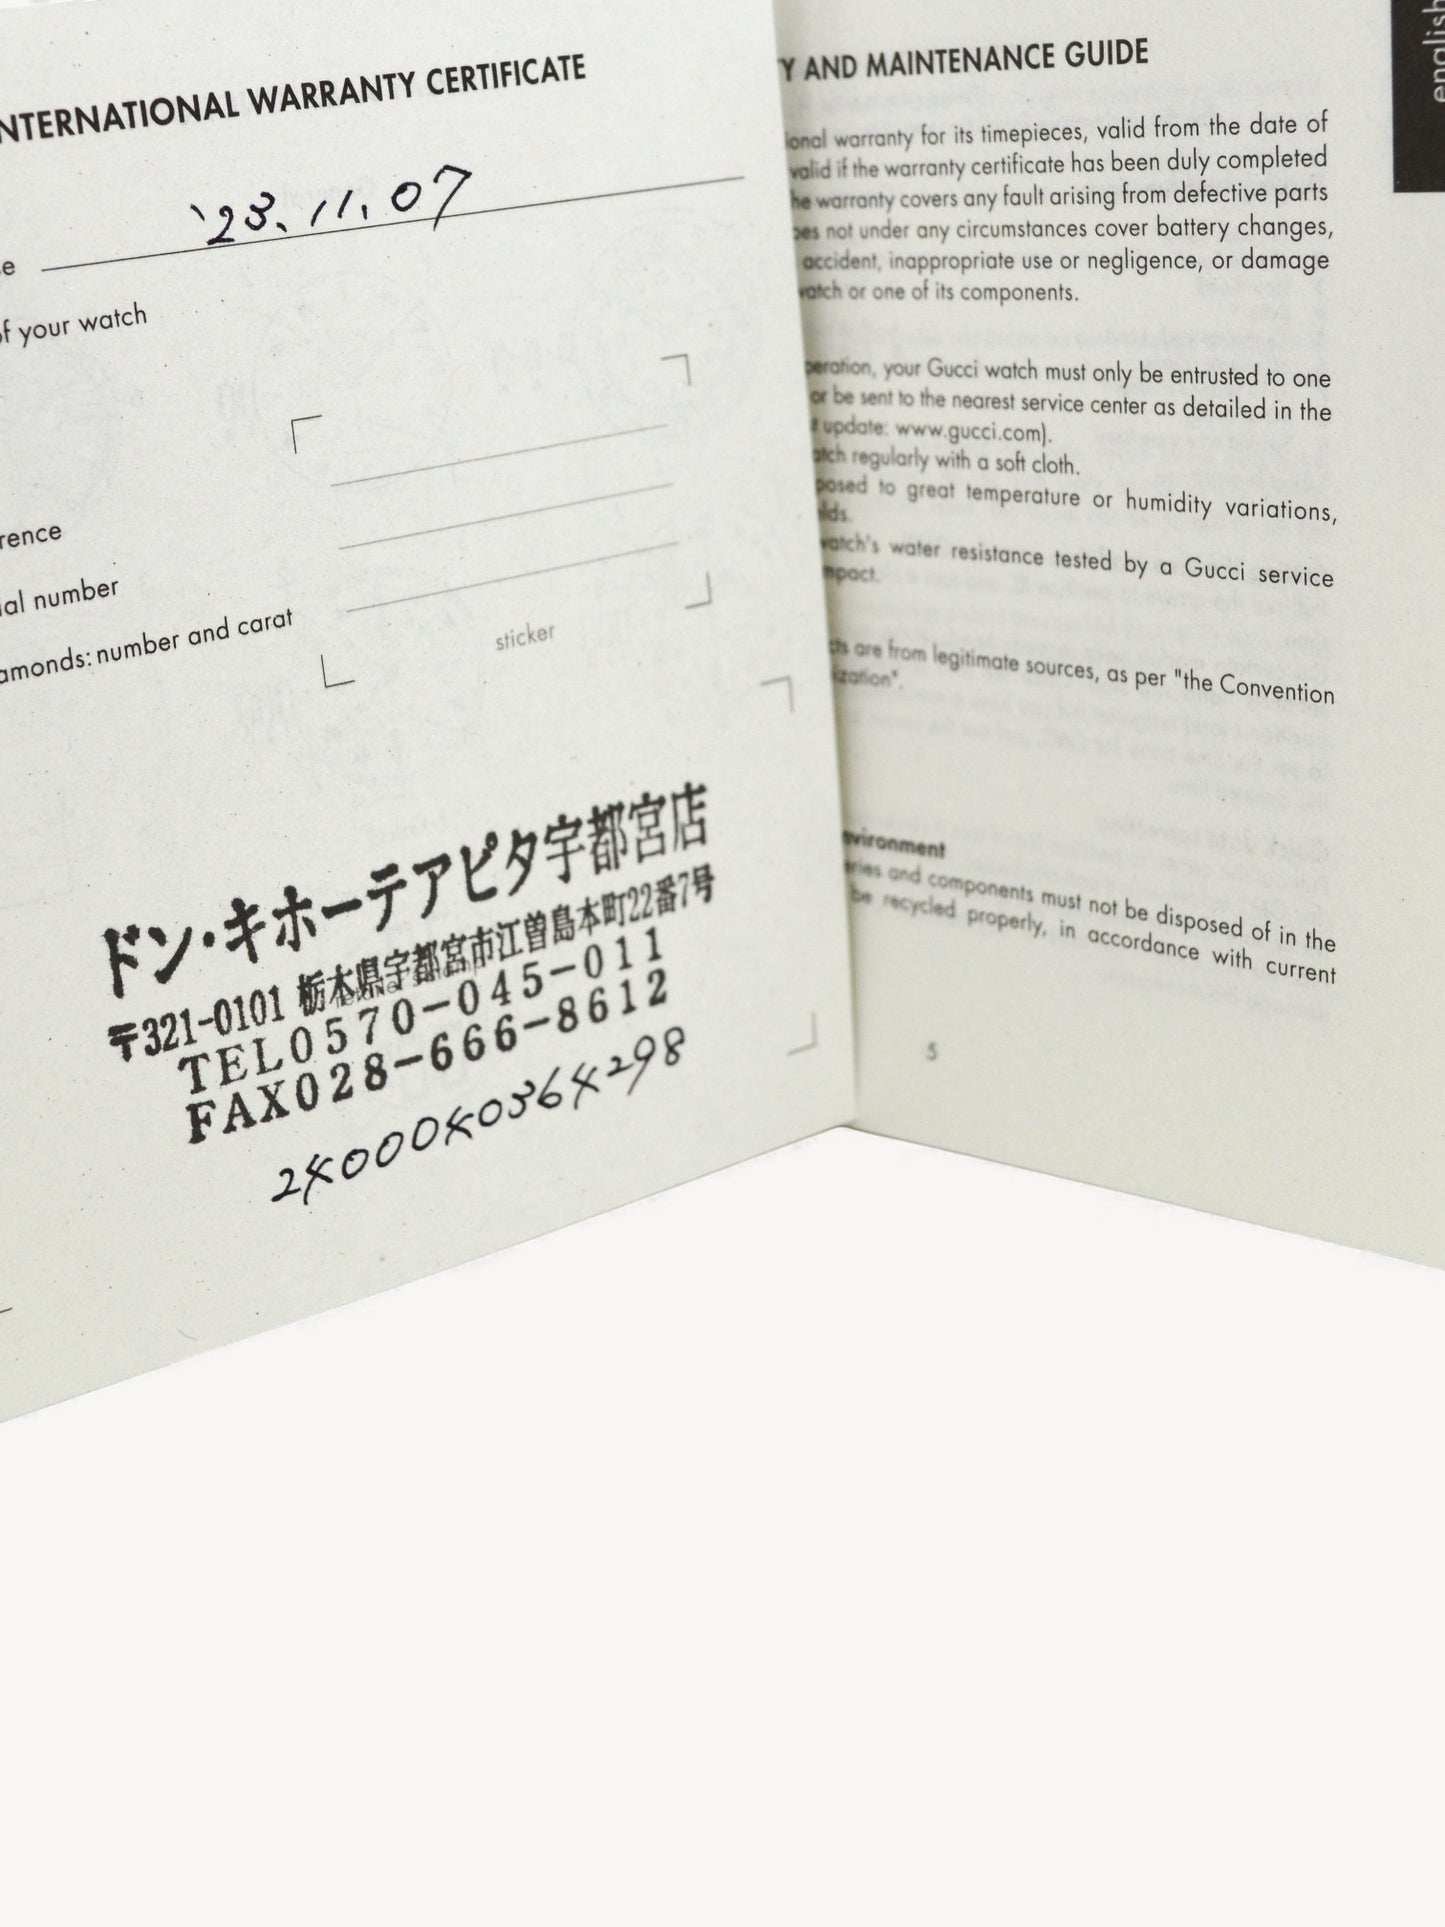 INTERNATIONAL WARRANTY CERTIFICATE
'23.11.07
of your watch
sticker
number
diamonds: number and carat
ドン・キホーテアピタ宇都宮店
〒321-0101 栃木県宇都宮市江曽島本町22番7号
TEL0570-045-011
FAX028-666-8612
AND MAINTENANCE GUIDE
warranty for its timepieces, valid from the date of
valid if the warranty certificate has been duly completed
he warranty covers any fault arising from defective parts
not under any circumstances cover battery changes,
accident, inappropriate use or negligence, or damage
watch or one of its components.
your Gucci watch must only be entrusted to one
or be sent to the nearest service center as detailed in the
update: www.gucci.com).
regularly with a soft cloth.
posed to great temperature or humidity variations,
watch's water resistance tested by a Gucci service
are from legitimate sources, as per "the Convention
ization".
vironment
and components must not be disposed of in the
be recycled properly, in accordance with current
5
english